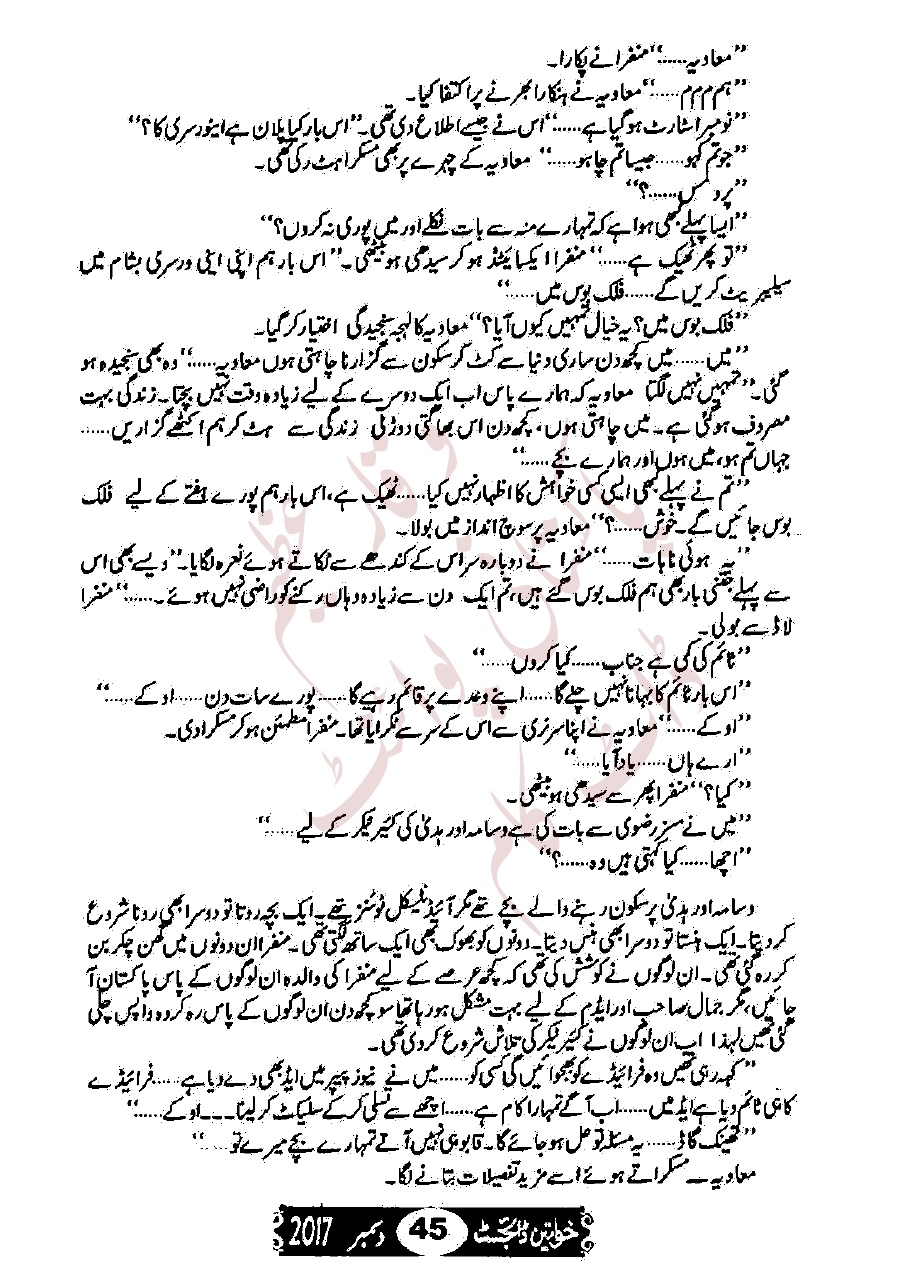 ”معاویہ......“ منفرا نے پکارا۔
”ہم م م م......“ معاویہ نے ہنکارا بھرنے پر اکتفا کیا۔
”نومبر اسٹارٹ ہو گیا ہے......“ اس نے جیسے اطلاع دی تھی۔ ”اس بار کیا پلان ہے اینورسری کا؟“
”جو تم کہو...... جیسا تم چاہو......“ معاویہ کے چہرے پر بھی مسکراہٹ رکی تھی۔
”پرومس......؟“
”ایسا پہلے کبھی ہوا ہے کہ تمہارے منہ سے بات نکلے اور میں پوری نہ کروں؟“
”تو پھر ٹھیک ہے......“ منفرا ایکسائیٹڈ ہو کر سیدھی ہو بیٹھی۔ ”اس بار ہم اپنی اینی ورسری بشام میں
سیلیبریٹ کریں گے...... فلک بوس میں......“
”فلک بوس میں؟ یہ خیال تمہیں کیوں آیا؟“ معاویہ کا لہجہ سنجیدگی اختیار کر گیا۔
”میں...... میں کچھ دن ساری دنیا سے کٹ کر سکون سے گزارنا چاہتی ہوں معاویہ......“ وہ بھی سنجیدہ ہو
گئی۔ ”تمہیں نہیں لگتا معاویہ کہ ہمارے پاس اب ایک دوسرے کے لیے زیادہ وقت نہیں بچتا۔ زندگی بہت
مصروف ہو گئی ہے۔ میں چاہتی ہوں، کچھ دن اس بھاگتی دوڑتی زندگی سے ہٹ کر ہم اکٹھے گزاریں......
جہاں تم ہو، میں ہوں اور ہمارے بچے......“
”تم نے پہلے کبھی ایسی کسی خواہش کا اظہار نہیں کیا...... ٹھیک ہے، اس بار ہم پورے ہفتے کے لیے فلک
بوس جائیں گے۔ خوش......؟“ معاویہ پر سوچ انداز میں بولا۔
”یہ ہوئی نا بات......“ منفرا نے دوبارہ سر اس کے کندھے سے ٹکاتے ہوئے نعرہ لگایا۔ ”ویسے بھی اس
سے پہلے جتنی بار بھی ہم فلک بوس گئے ہیں، تم ایک دن سے زیادہ وہاں رکنے کو راضی نہیں ہوئے۔......“ منفرا
لاڈ سے بولی۔
”ٹائم کی کمی ہے جناب...... کیا کروں......“
”اس بار ٹائم کا بہانا نہیں چلے گا...... اپنے وعدے پر قائم رہیے گا...... پورے سات دن...... او کے......“
”او کے......“ معاویہ نے اپنا سر نرمی سے اس کے سر سے ٹکرایا تھا۔ منفرا مطمئن ہو کر مسکرا دی۔
”ارے ہاں...... یاد آیا......“
”کیا؟“ منفرا پھر سے سیدھی ہو بیٹھی۔
”میں نے مسز رضوی سے بات کی ہے وسامہ اور ہدیٰ کی کیئر ٹیکر کے لیے......“
”اچھا...... کیا کہتی ہیں وہ......؟“
وسامہ اور ہدیٰ پر سکون رہنے والے بچے تھے مگر آئیڈنٹیکل ٹوئنز تھے۔ ایک بچہ روتا تو دوسرا بھی رونا شروع
کر دیتا۔ ایک ہنستا تو دوسرا بھی ہنس دیتا۔ دونوں کو بھوک بھی ایک ساتھ لگتی تھی۔ منفرا ان دونوں میں گھن چکر بن
کر رہ گئی تھی۔ ان لوگوں نے کوشش کی تھی کہ کچھ عرصے کے لیے منفرا کی والدہ ان لوگوں کے پاس پاکستان آ
جائیں، مگر جمال صاحب اور ایڈم کے لیے بہت مشکل ہو رہا تھا سو کچھ دن ان لوگوں کے پاس رہ کر وہ واپس چلی
گئی تھیں لہٰذا اب ان لوگوں نے کیئر ٹیکر کی تلاش شروع کر دی تھی۔
”کہہ رہی تھیں وہ فرائیڈے کو بھجوائیں گی کسی کو...... میں نے نیوز پیپر میں ایڈ بھی دے دیا ہے...... فرائیڈے
کا ہی ٹائم دیا ہے ایڈ میں...... اب آگے تمہارا کام ہے...... اچھے سے تسلی کر کے سلیکٹ کر لینا...۔ او کے......“
”تھینک گاڈ...... یہ مسئلہ تو حل ہو جائے گا۔ قابو ہی نہیں آتے تمہارے بچے میرے تو......“
معاویہ ۔۔ مسکراتے ہوئے اسے مزید تفصیلات بتانے لگا۔
خواتین ڈائجسٹ 45 دسمبر 2017